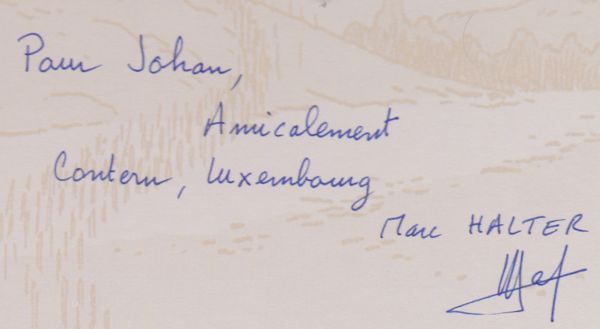 Pour Johan,
Amicalement
Contern, Luxembourg
Marc HALTER